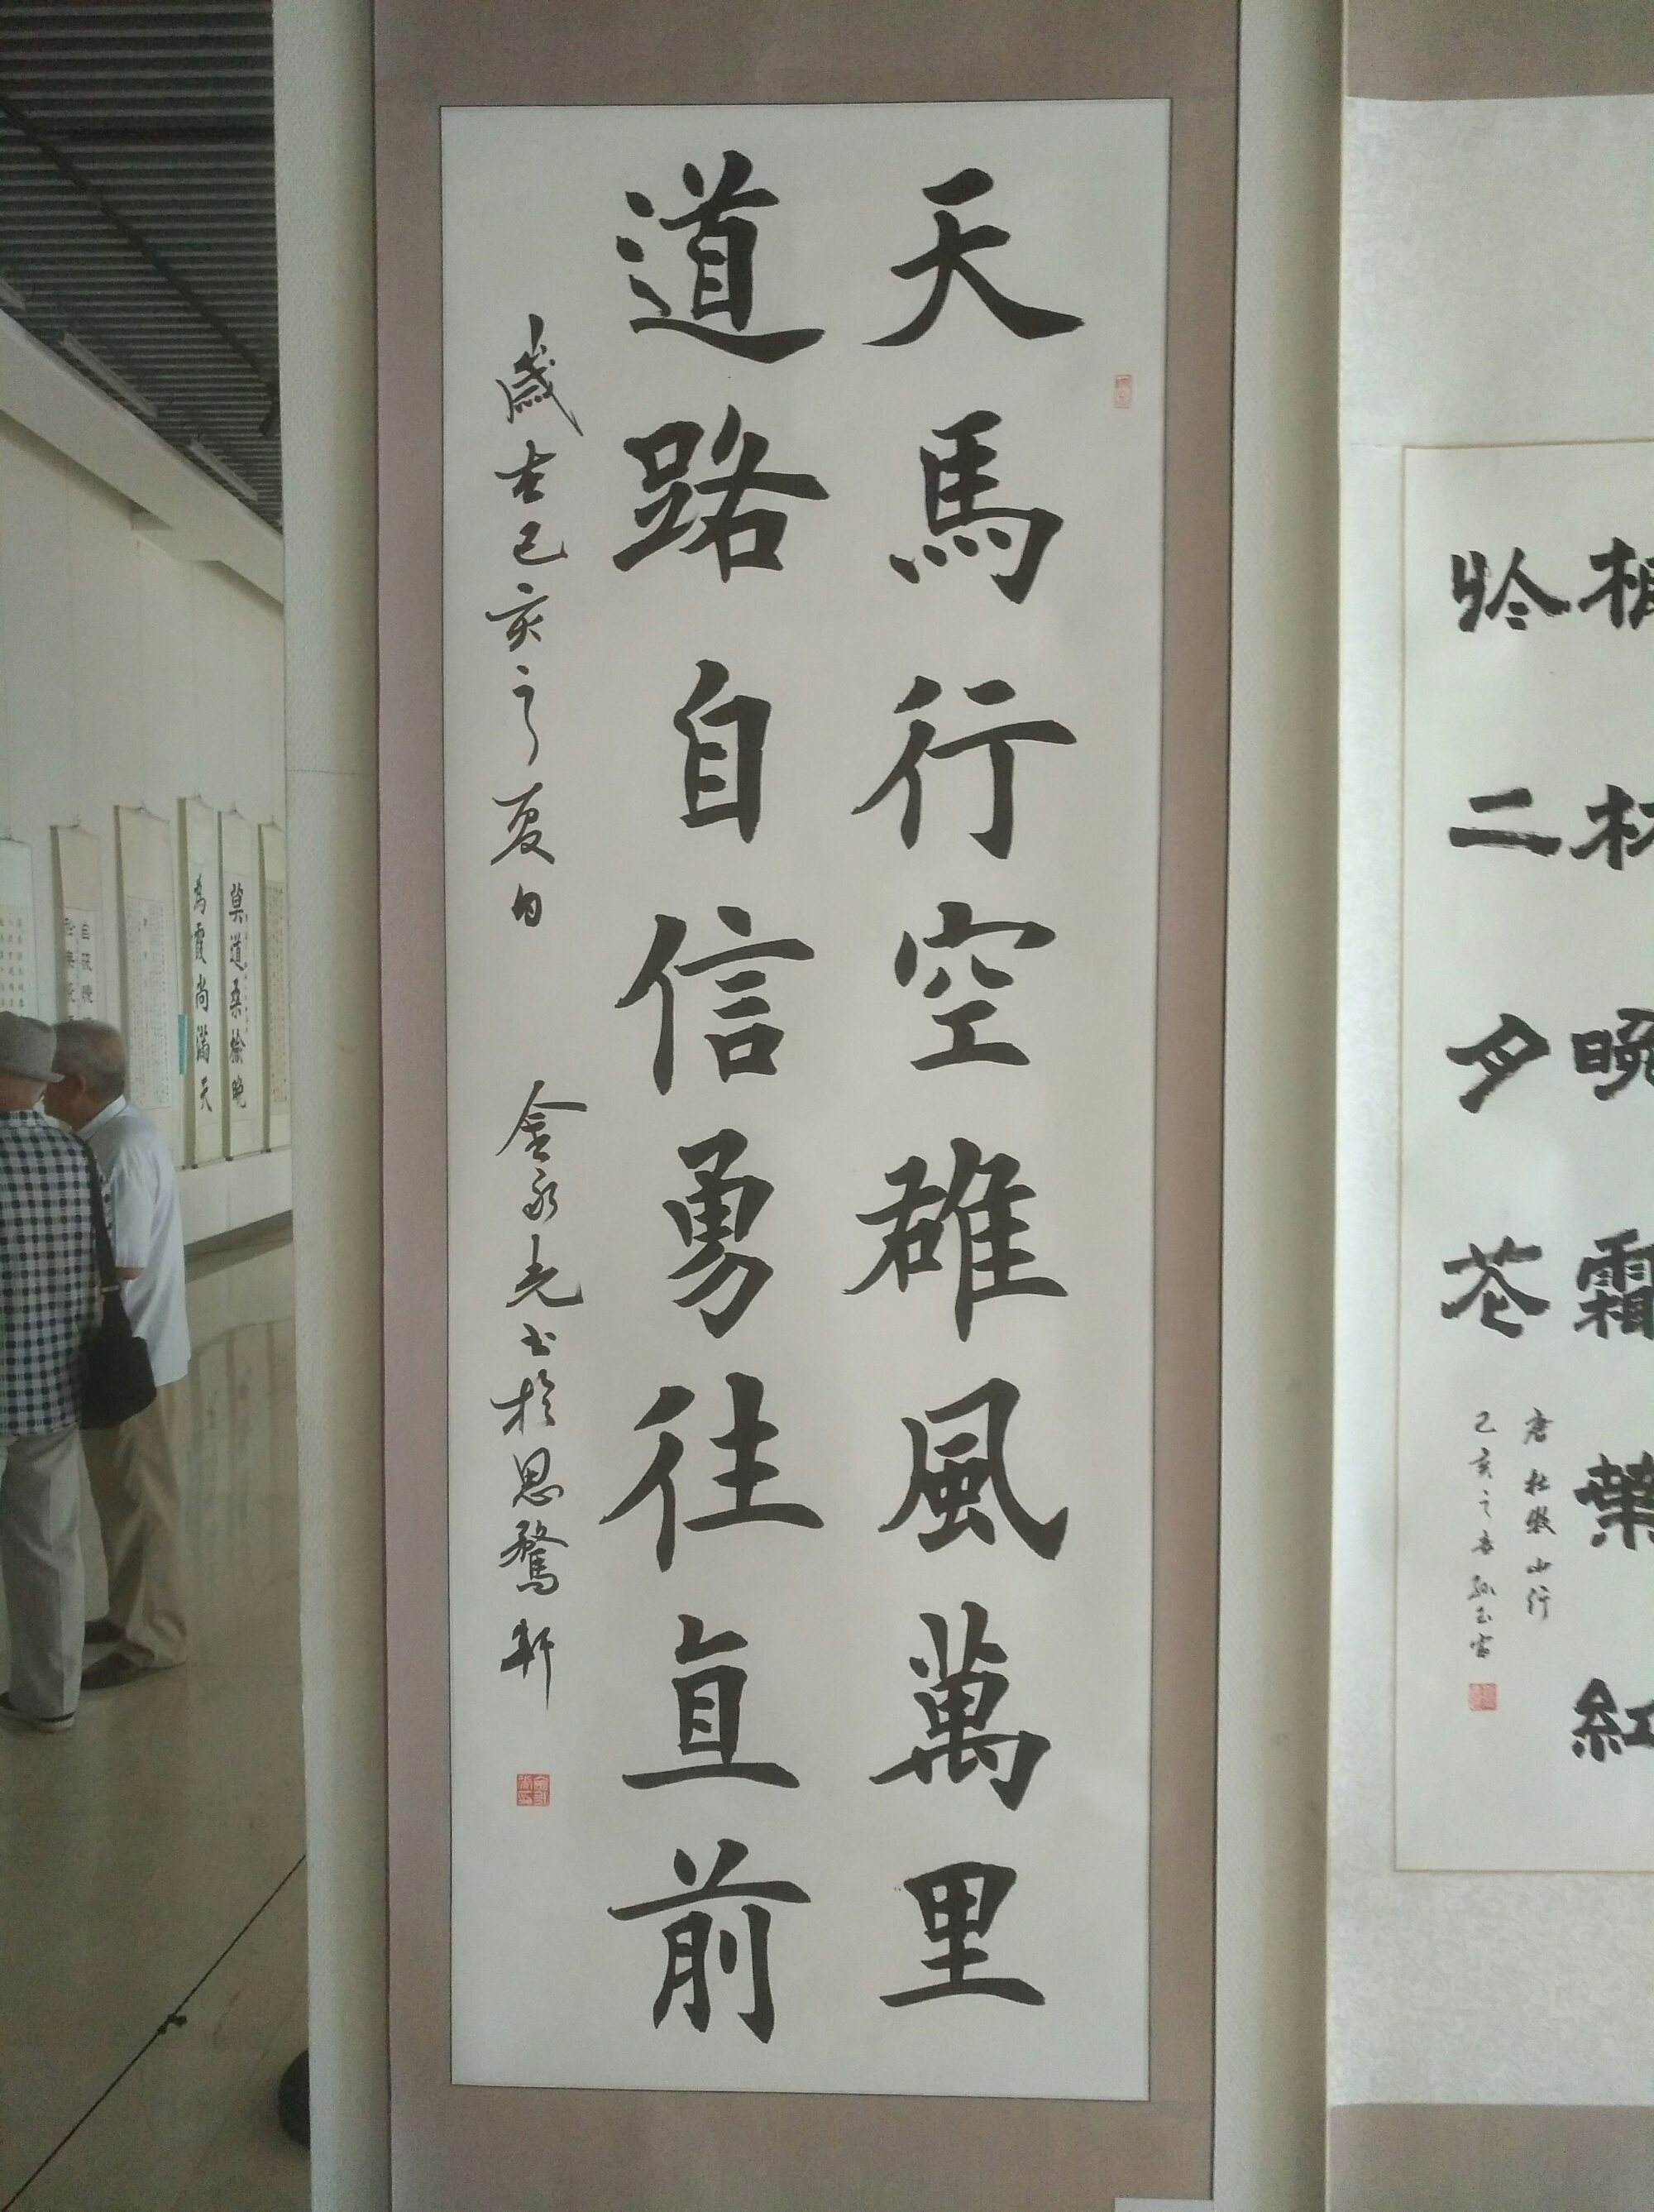 天馬行空雄風萬里
道路自信勇往直前
歲在己亥之夏日 金永光书於思騖軒
晚霜葉紅
於二月花
唐杜牧山行
己亥之春
莫道桑榆晚
為霞尚滿天